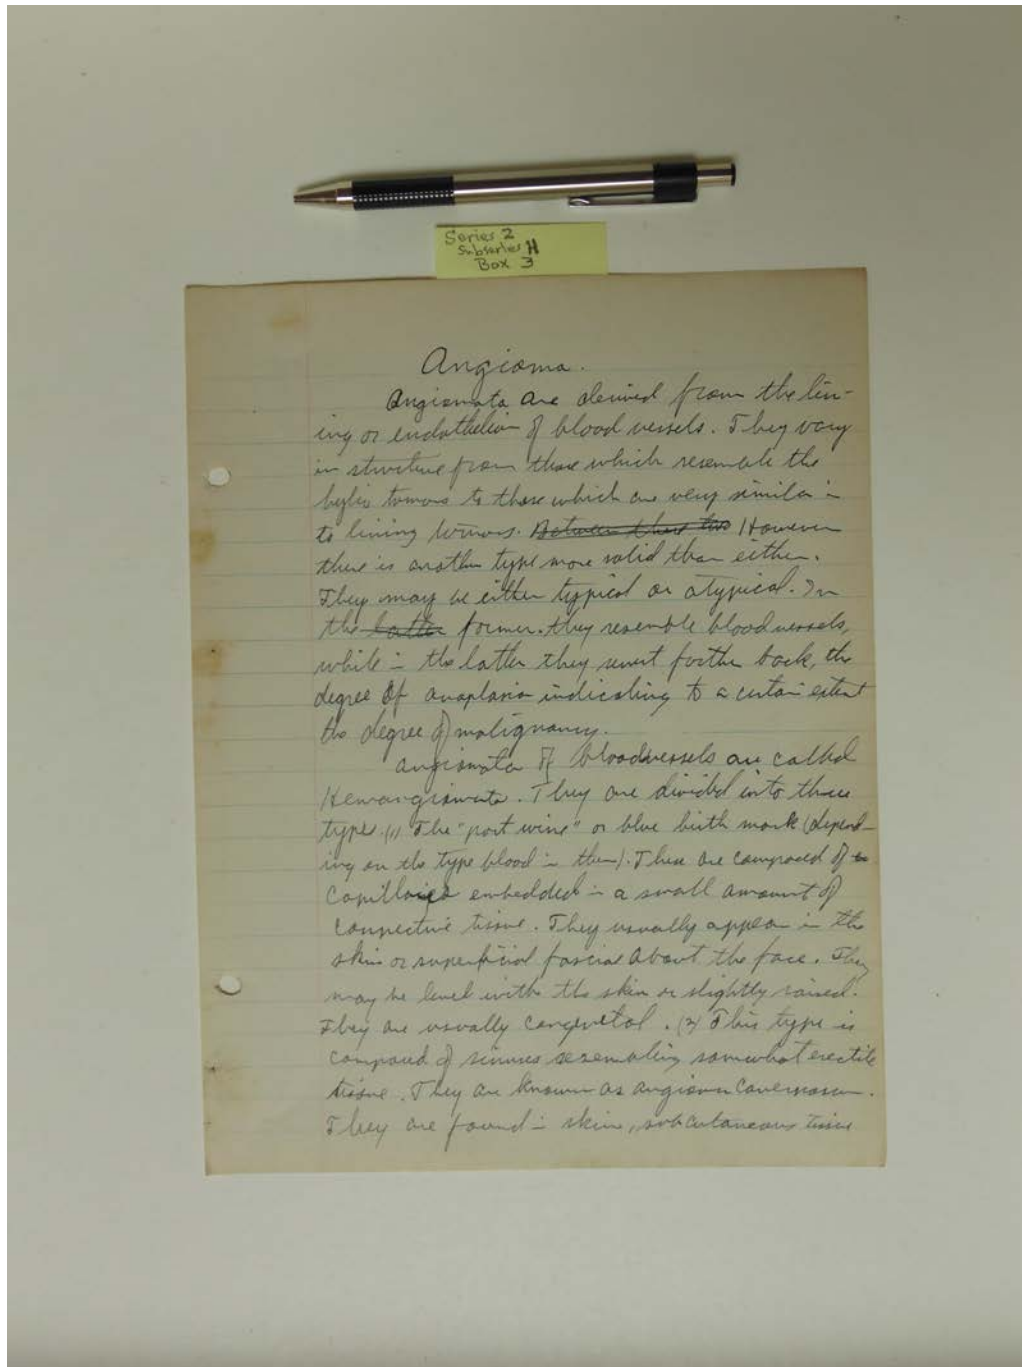 Series 2
Subseries H
Box 3
Angioma.
Angiomata are derived from the lin-
ing or endothelium of blood vessels. They vary
in structure from those which resemble the
tumors to those which are very similar in
to lining tumors. Between these two However
there is another type more solid than either.
They may be either typical or atypical. In
the latter former. they resemble blood vessels,
while in the latter they revert further back, the
degree of anaplasia indicating to a certain extent
the degree of malignancy.
Angiomata of bloodvessels are called
Hemangiomata. They are divided into three
types. (1) The "port wine" or blue birth mark (depend-
ing on the type blood in them). These are composed of
Capillaries embedded in a small amount of
connective tissue. They usually appear in the
skin or superficial fasciae about the face. They
may be level with the skin or slightly raised.
They are usually congenital. (2) This type is
composed of sinuses resembling somewhat erectile
tissue. They are known as angioma Cavernosum.
They are found in skin, subcutaneous tissue